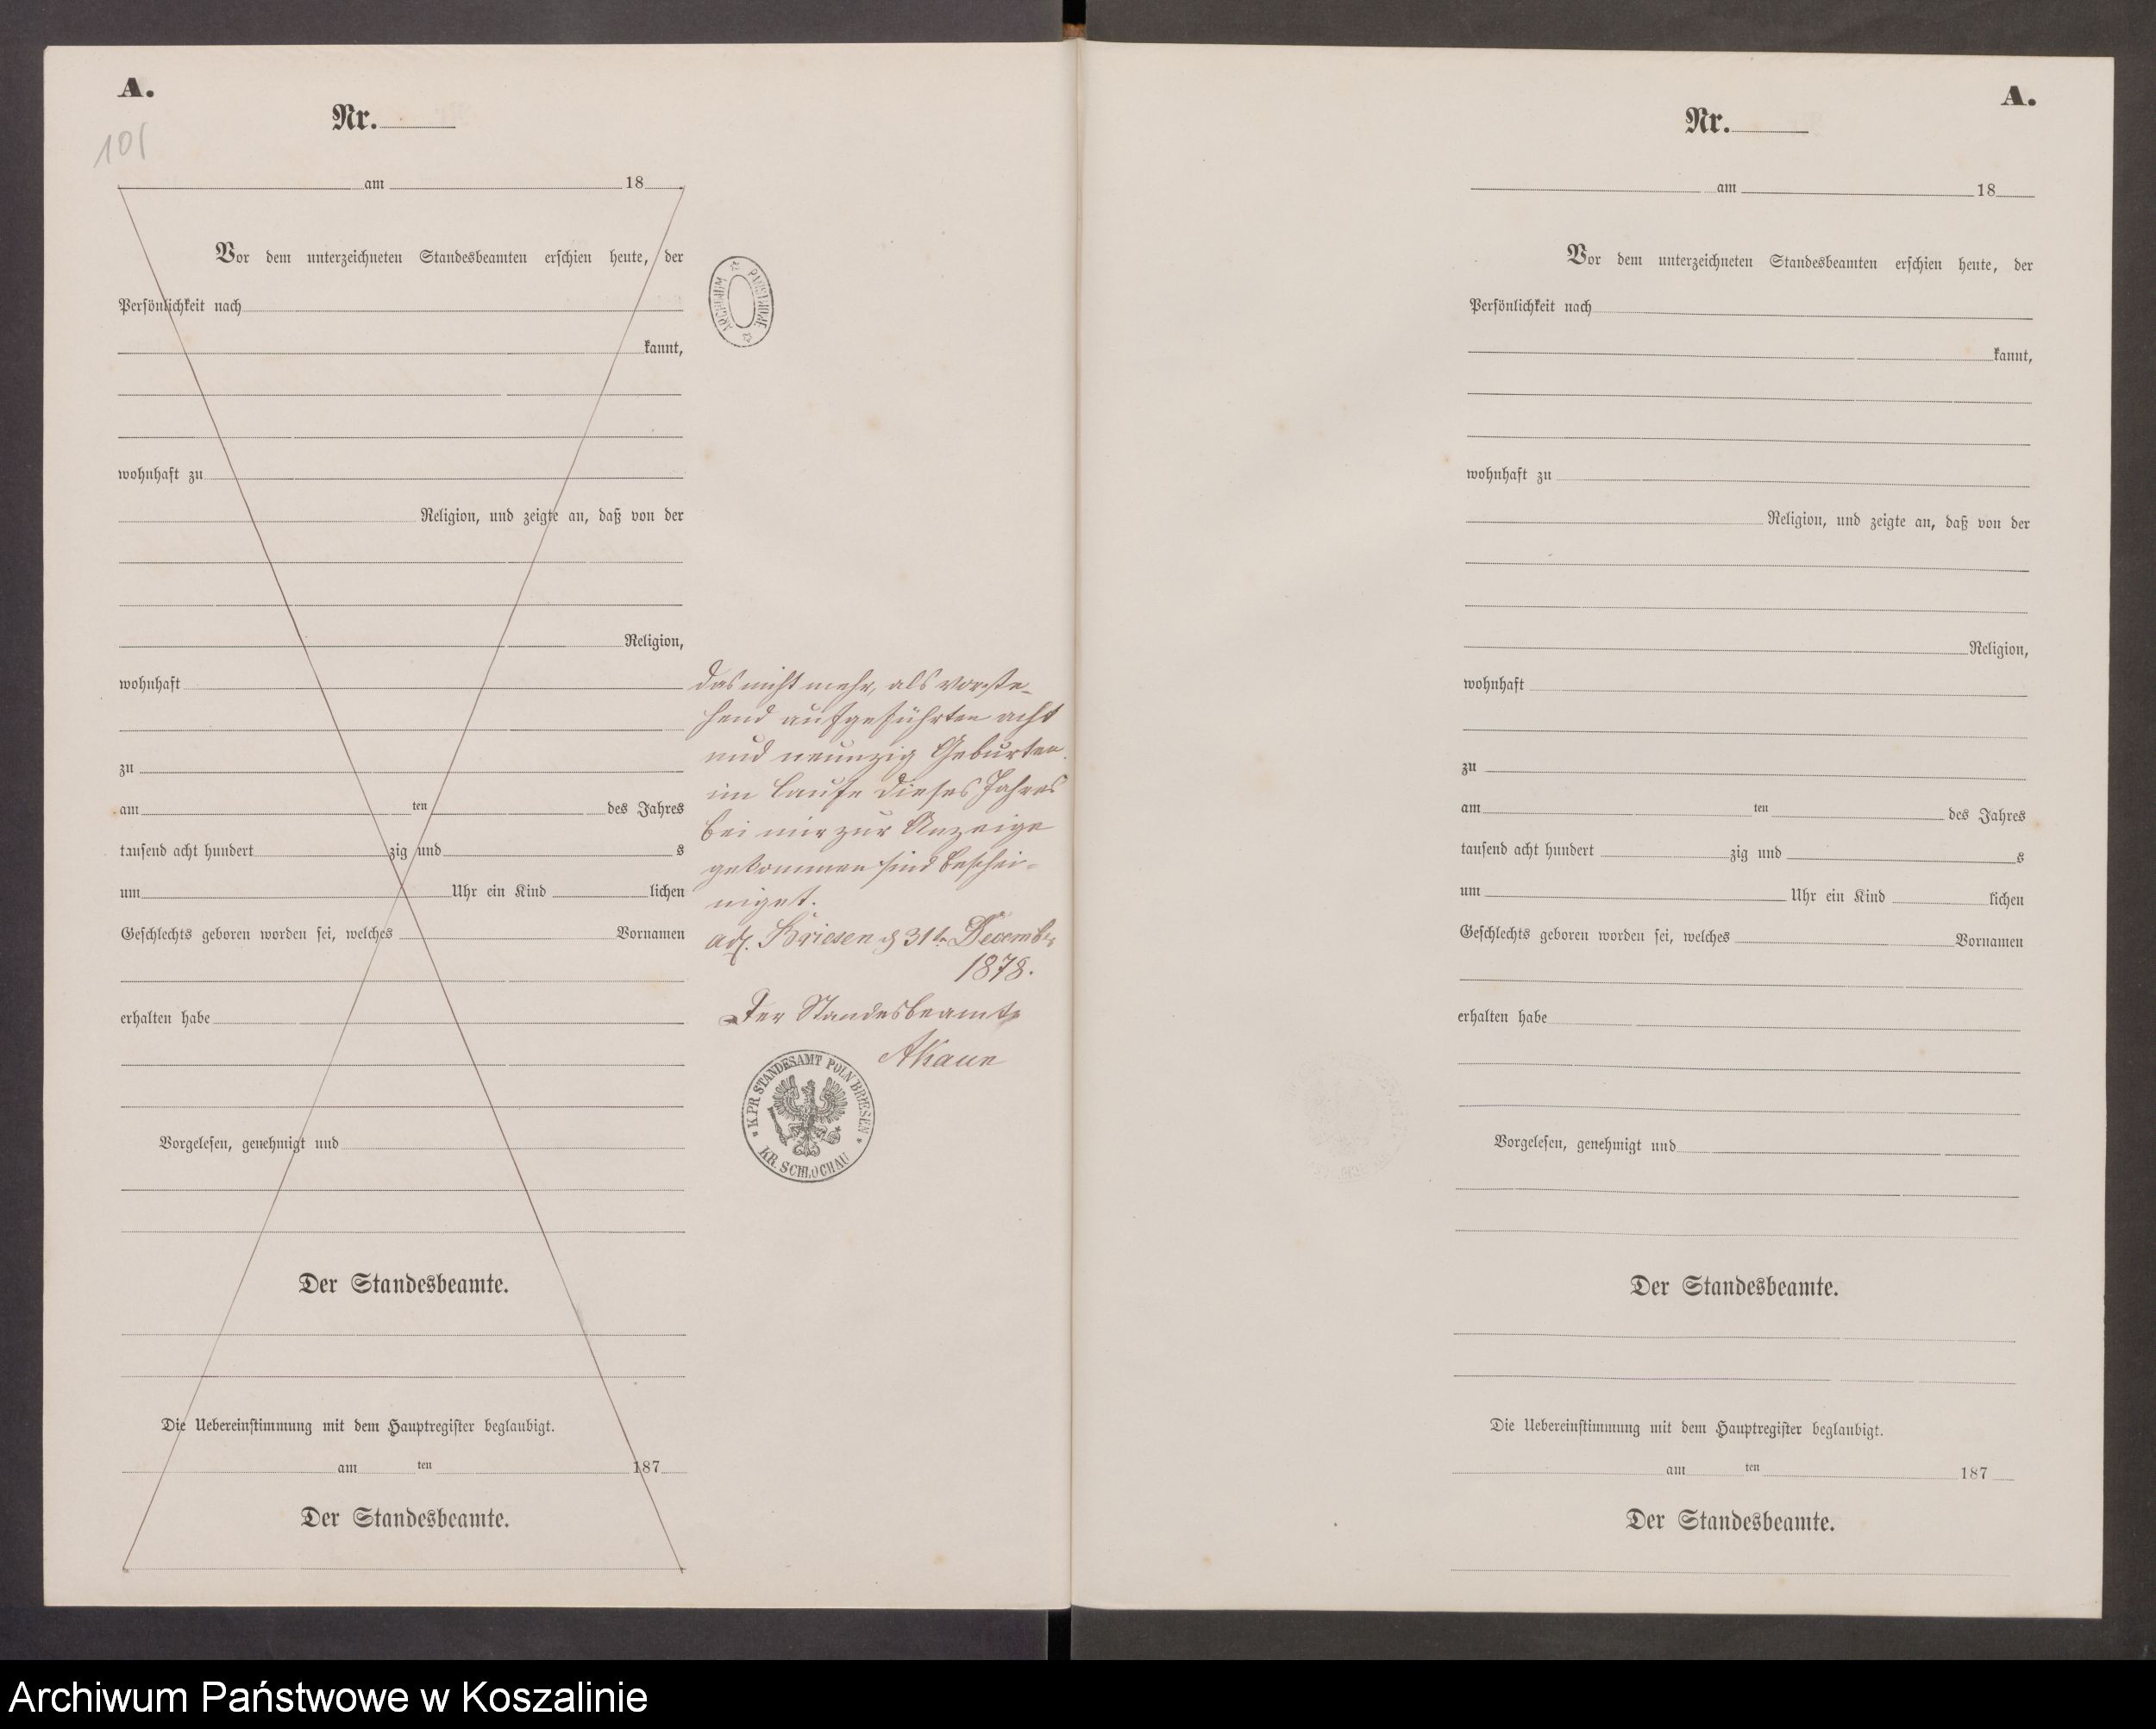 A.
Nr.
101
am 18
Vor dem unterzeichneten Standesbeamten erschien heute, der
Persönlichkeit nach
kannt,
wohnhaft zu
Religion, und zeigte an, daß von der
Religion,
wohnhaft
zu
am ten des Jahres
tausend acht hundert zig und s
um Uhr ein Kind lichen
Geschlechts geboren worden sei, welches Vornamen
erhalten habe
Vorgelesen, genehmigt und
Der Standesbeamte.
Die Uebereinstimmung mit dem Hauptregister beglaubigt.
am ten 187
Der Standesbeamte.
ARCHIWUM PAŃSTWOWE
das nicht mehr, als vorste-
hend aufgeführten acht
und neunzig Geburten
im Laufe dieses Jahres
bei mir zur Anzeige
gekommen sind beschei-
niget.
Briesen 31 December
1878.
Der Standesbeamte
AKaun
K. PR. STANDESAMT POLN BRIESEN
KR. SCHLOCHAU
A.
Nr.
am 18
Vor dem unterzeichneten Standesbeamten erschien heute, der
Persönlichkeit nach
kannt,
wohnhaft zu
Religion, und zeigte an, daß von der
Religion,
wohnhaft
zu
am ten des Jahres
tausend acht hundert zig und s
um Uhr ein Kind lichen
Geschlechts geboren worden sei, welches Vornamen
erhalten habe
Vorgelesen, genehmigt und
Der Standesbeamte.
Die Uebereinstimmung mit dem Hauptregister beglaubigt.
am ten 187
Der Standesbeamte.
Archiwum Państwowe w Koszalinie